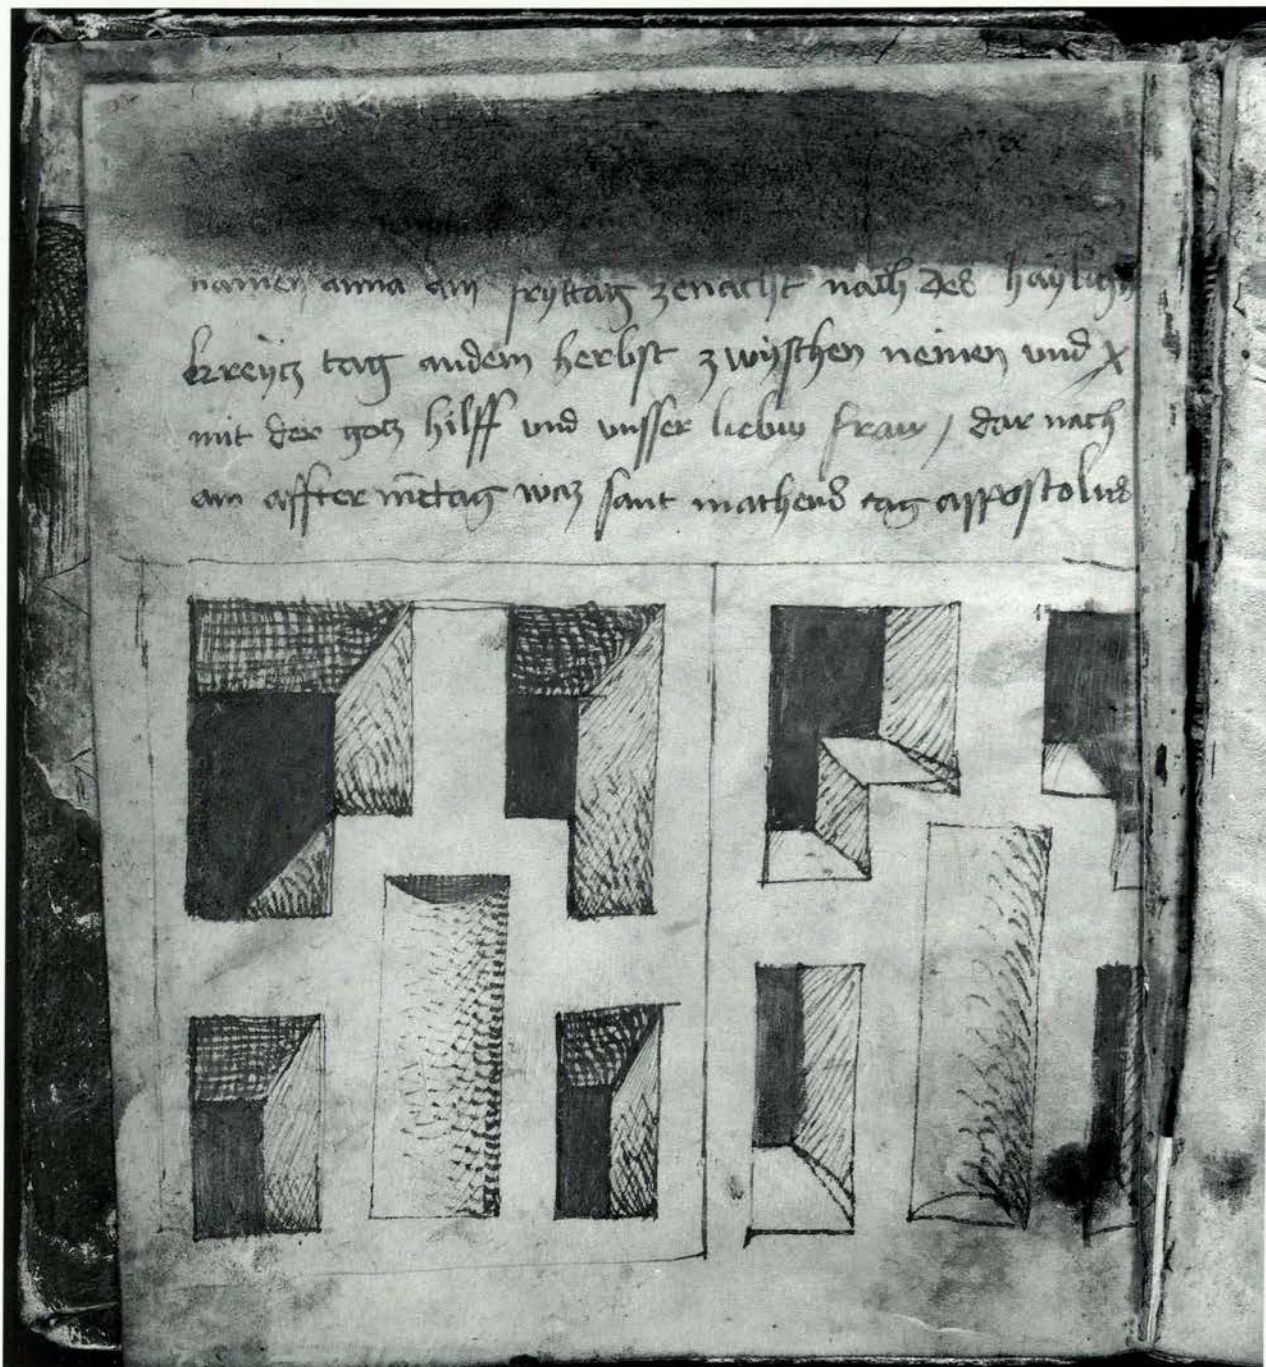 namen anna am fryttag zenacht nach des hayligen
kreytz tag andem herbst zwyschen neinen und x
mit der gotz hilff und unsser liebin fraw / dar nach
am affter metag waz sant matheus tag appostolus